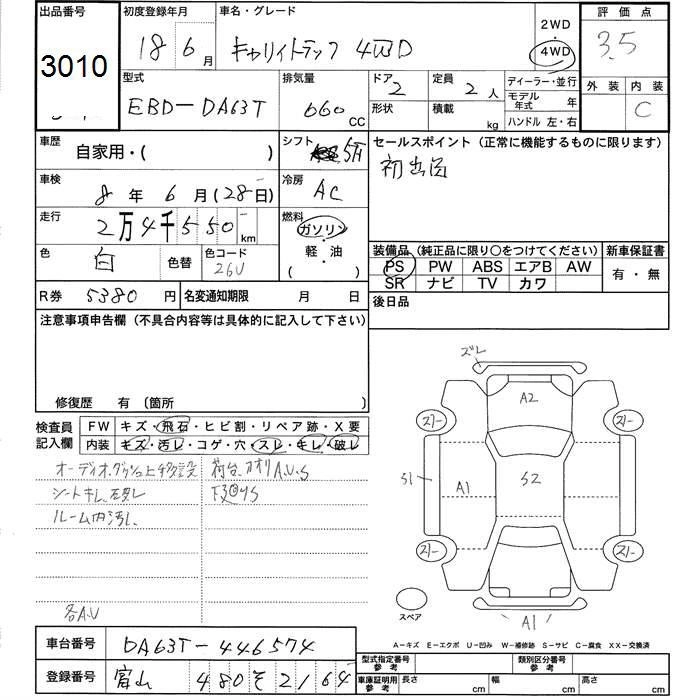 出品番号 初度登録年月 車名・グレード 2WD 評価点
3010 18 6月 キャリイトラック 4WD 4WD 3.5
型式 排気量 ドア 定員 ディーラー・並行 外装 内装
EBD-DA63T 660 CC 2 2人 モデル年式 年 C
形状 積載 kg ハンドル 左・右
車歴 自家用・( ) シフト 5F セールスポイント(正常に機能するものに限ります)
車検 8年 6月(28日) 冷房 AC 初出品
走行 2万4千550km 燃料 ガソリン
軽・油
( )
色 白 色替 色コード 26U
装備品(純正品に限り○をつけてください) 新車保証書
PS PW ABS エアB AW 有・無
SR ナビ TV カワ
R券 5380円 名変通知期限 月 日 後日品
注意事項申告欄(不具合内容等は具体的に記入して下さい)
修復歴 有 〔箇所
検査員記入欄 FW キズ・飛石・ヒビ割・リペア跡・X要
内装 キズ・汚レ・コゲ・穴・スレ・キレ・破レ
荷台 アオリA.U.S
シートキレ
ルーム内汚レ
各A.U
ズレ
A2
スリー スリー
S1 A1 S2
スリー スリー
スペア
A1
A-キズ E-エクボ U-凹み W-補修跡 S-サビ C-腐食 XX-交換済
車台番号 DA63T-446574
登録番号 富山 480 そ 2164
型式指定番号 参考 類別区分番号 参考
車庫証明用 参考 長さ cm 幅 cm 高さ cm